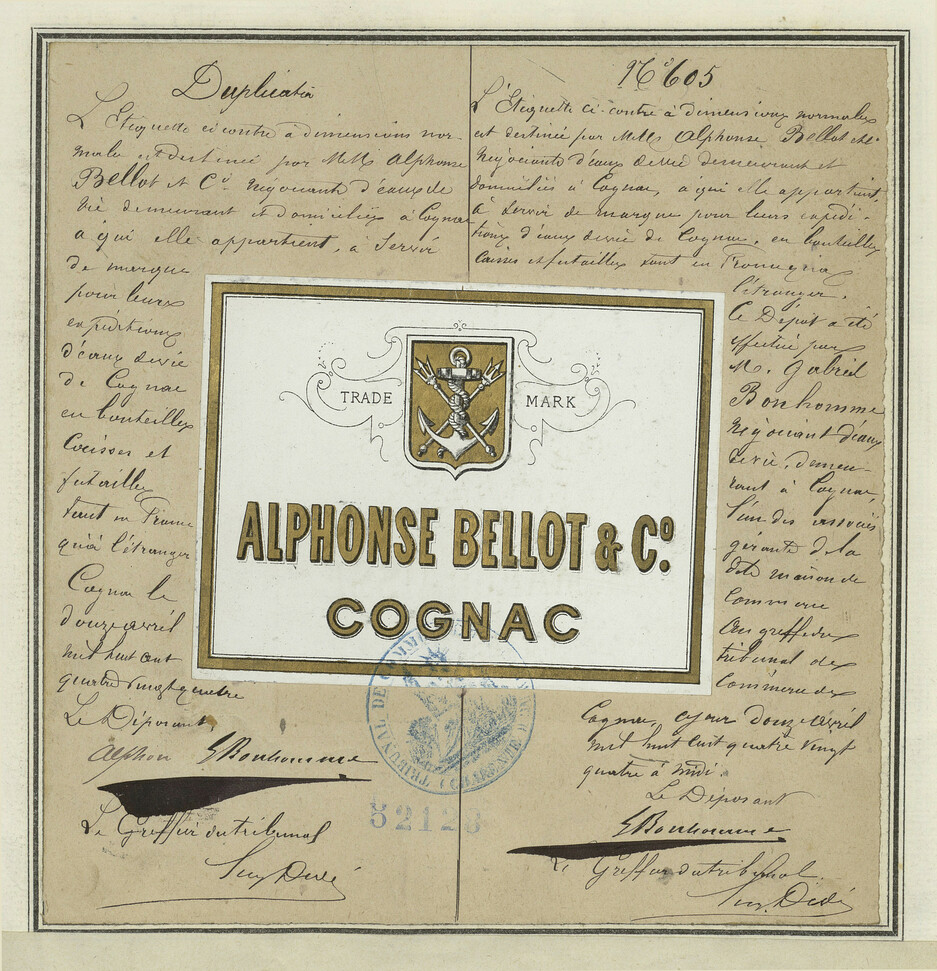 Duplicata
L'Etiquette ci contre à dimensions nor-
male est destinée par MMrs Alphonse
Bellot et Co. négociants d'eaux de
vie demeurant et domiciliés à Cognac
a qui elle appartient, a Servir
de marque
pour leurs
expéditions
d'eaux de vie
de Cognac
en bouteilles
Caisses et
futailles
tant en France
qu'à l'étranger
Cognac le
douze avril
mil huit cent
quatre vingt quatre
Le Déposant,
Alphon GBonhomme
Le Greffier du tribunal
No 605
L'Etiquette ci-contre à dimensions normales
est destinée par MMrs Alphonse Bellot et Co
négociants d'eaux de vie demeurant et
domiciliés à Cognac, a qui elle appartient,
à servir de marque pour leurs expédi-
tions d'eaux de vie de Cognac, en bouteilles
caisses et futailles tant en France qu'à
l'étranger.
Ce Dépot a été
effectué par
M. Gabriel
Bonhomme
négociant d'eaux
de vie, demeu-
rant à Cognac,
l'un des associés
gérants de la
dite maison de
Commerce
Au greffe du
tribunal de
Commerce de
Cognac, ce jour douze avril
mil huit cent quatre vingt
quatre à midi.
Le Déposant
GBonhomme
Le Greffier du tribunal.
TRADE MARK
ALPHONSE BELLOT & Co.
COGNAC
TRIBUNAL DE COMM
CHARENTE
52123